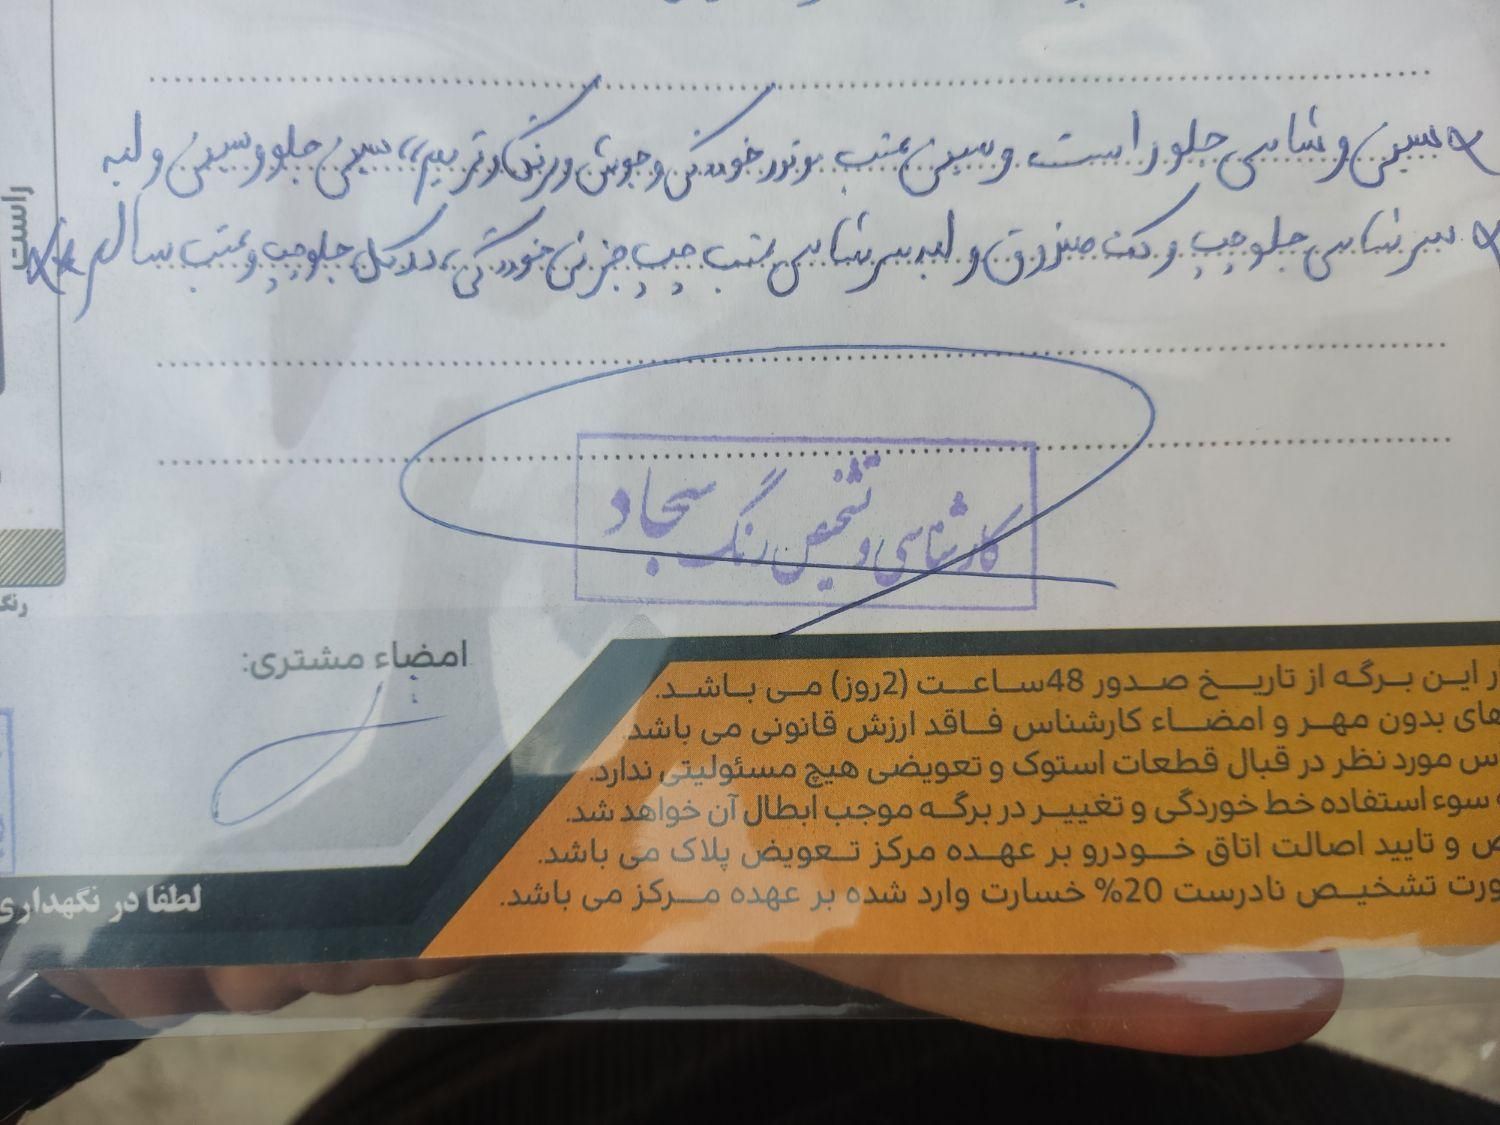 سینی و شاسی جلو راست و سینی عقب مورد خوردگی و جوش و رنگ و ترمیم،، سینی جلو و سینی و لبه
سر شاسی جلو چپ و کف صندوق و لبه سر شاسی عقب چپ جزئی خوردگی،، کل جلو چپ و عقب سالم **
راست
کارشناسی و تشخیص رنگ سجاد
رنگ
امضاء مشتری:
ر این برگه از تاریخ صدور 48ساعت (2روز) می باشد.
های بدون مهر و امضاء کارشناس فاقد ارزش قانونی می باشد.
س مورد نظر در قبال قطعات استوک و تعویضی هیچ مسئولیتی ندارد.
سوء استفاده خط خوردگی و تغییر در برگه موجب ابطال آن خواهد شد.
ص و تایید اصالت اتاق خودرو بر عهده مرکز تعویض پلاک می باشد.
ورت تشخیص نادرست 20% خسارت وارد شده بر عهده مرکز می باشد.
لطفا در نگهداری